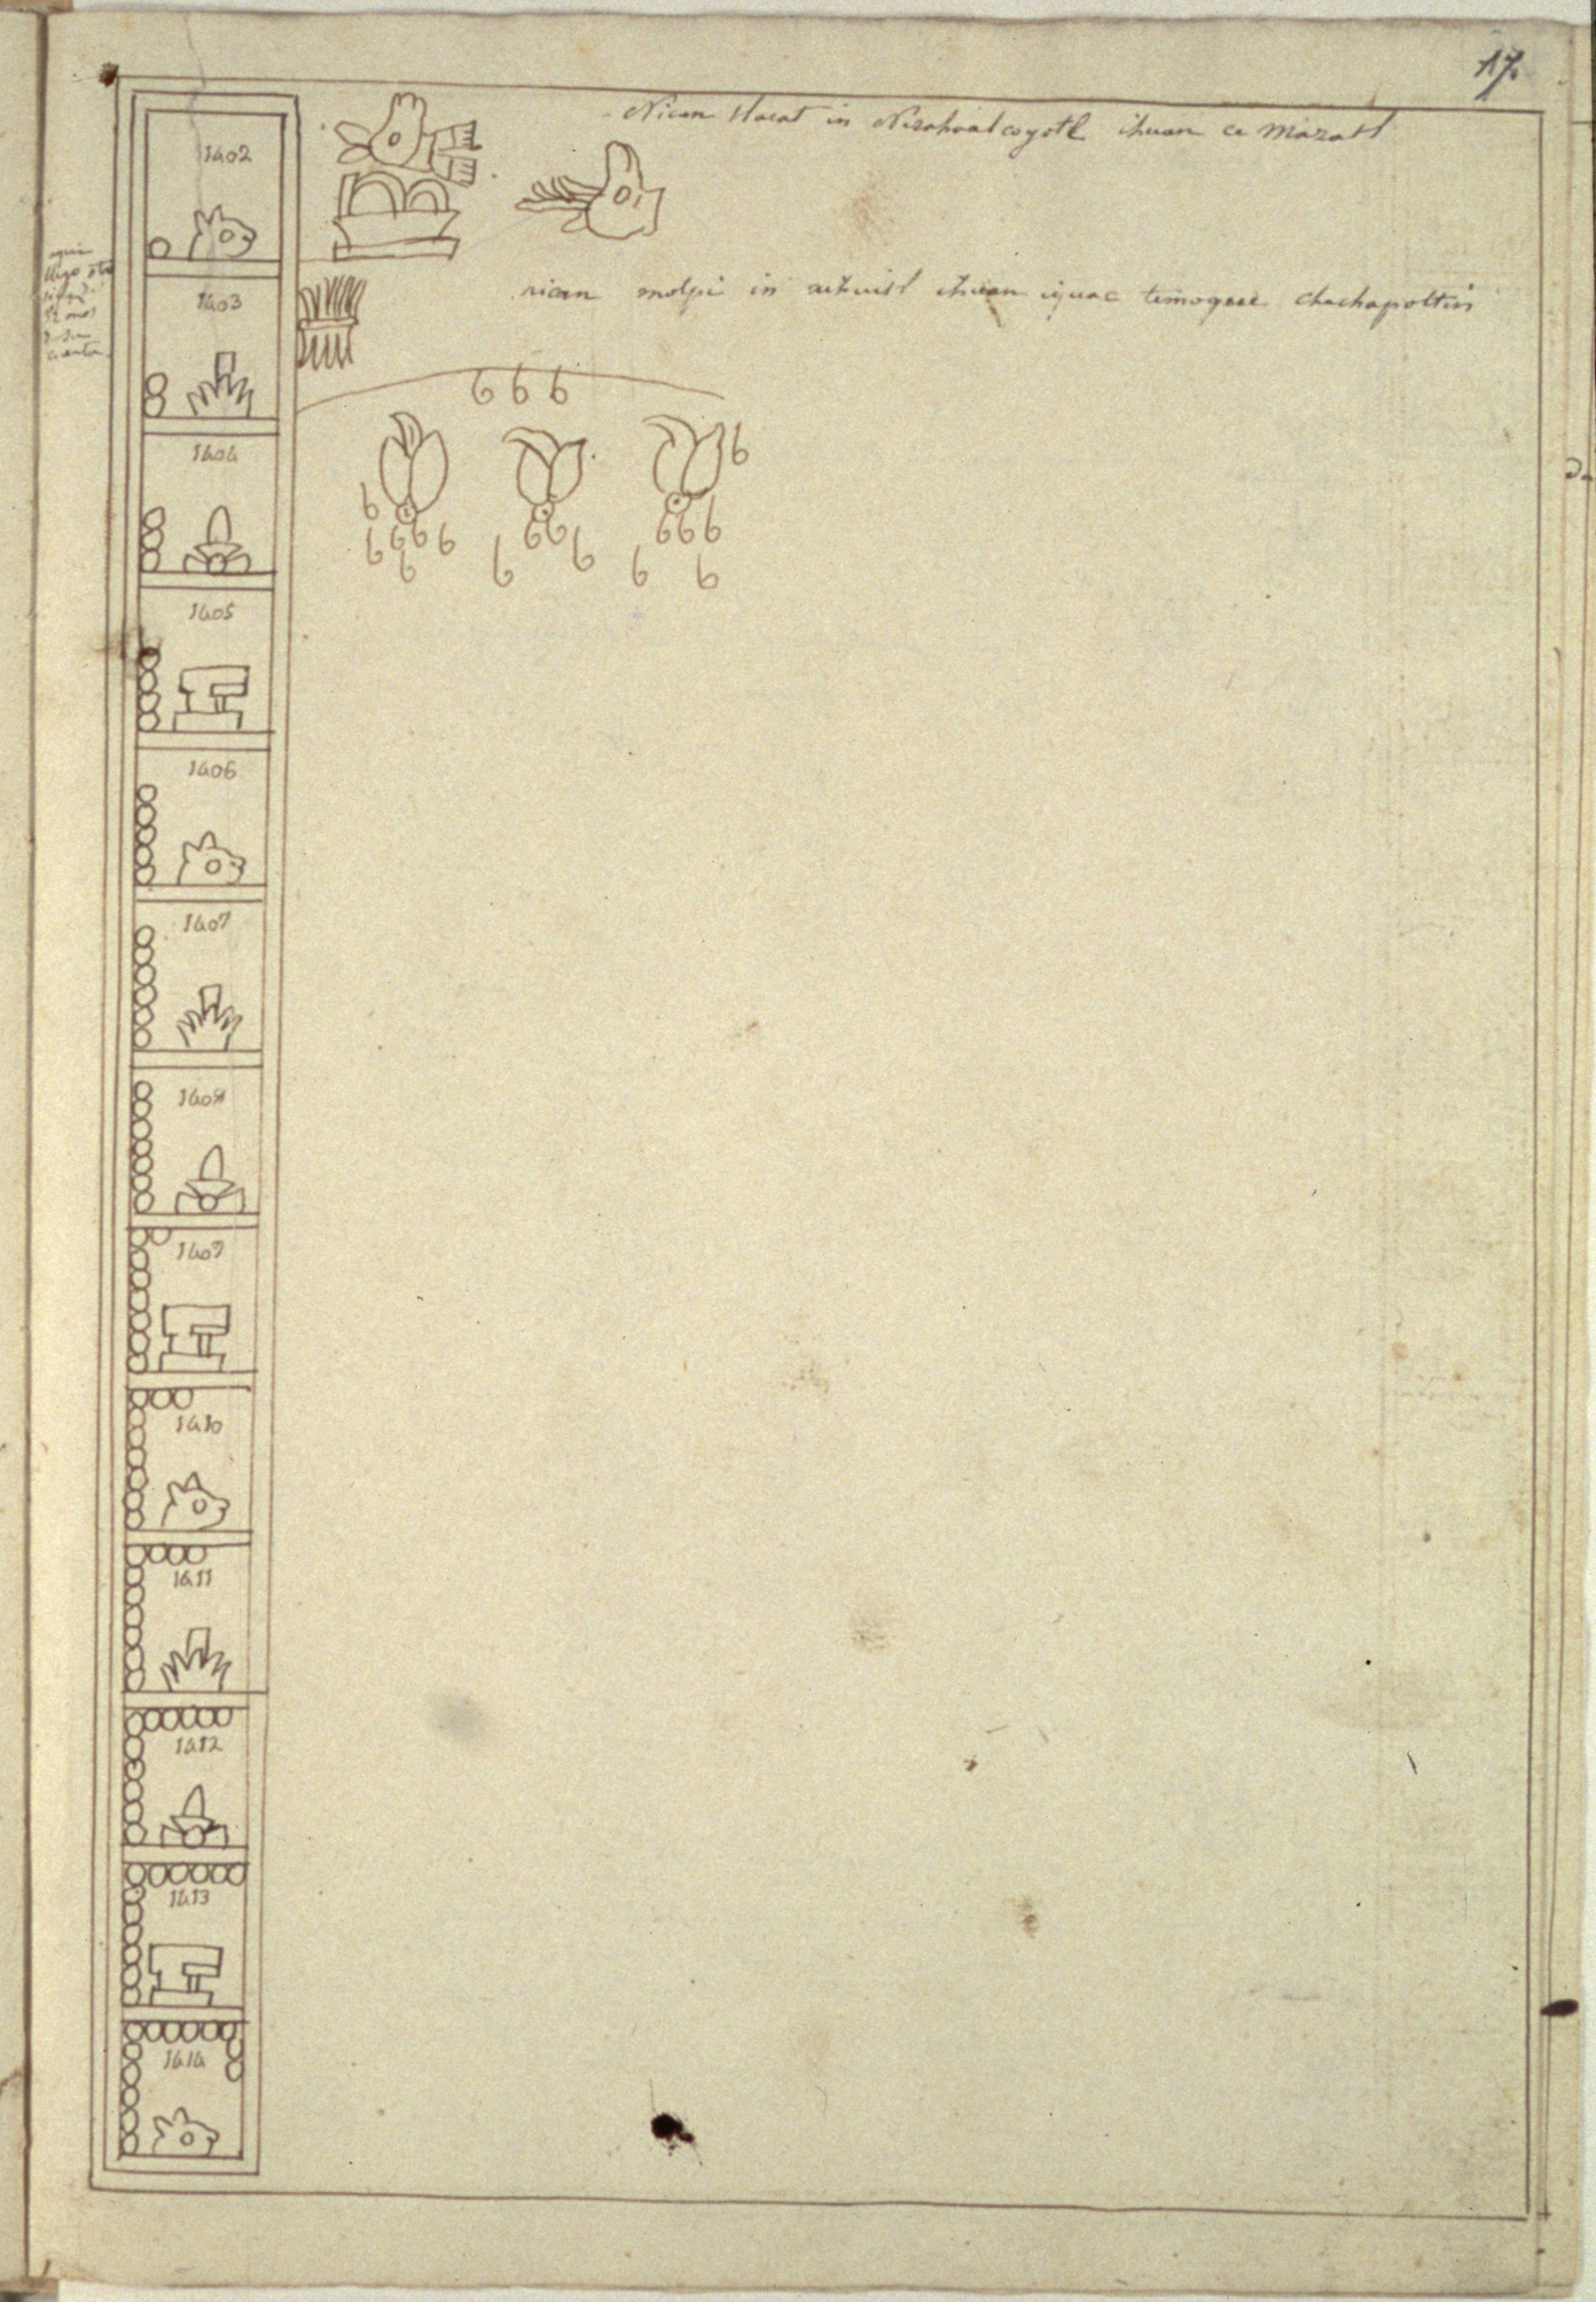 17.
Nican tlacat in Nezahoalcoyotl ihuan ce Mazatl
1402
nican molpi in xihuitl ihuan iquac temoque chachapoltin
aqui
1403
52 años
cuenta
1404
1405
1406
1407
1408
1409
1410
1411
1412
1413
1414